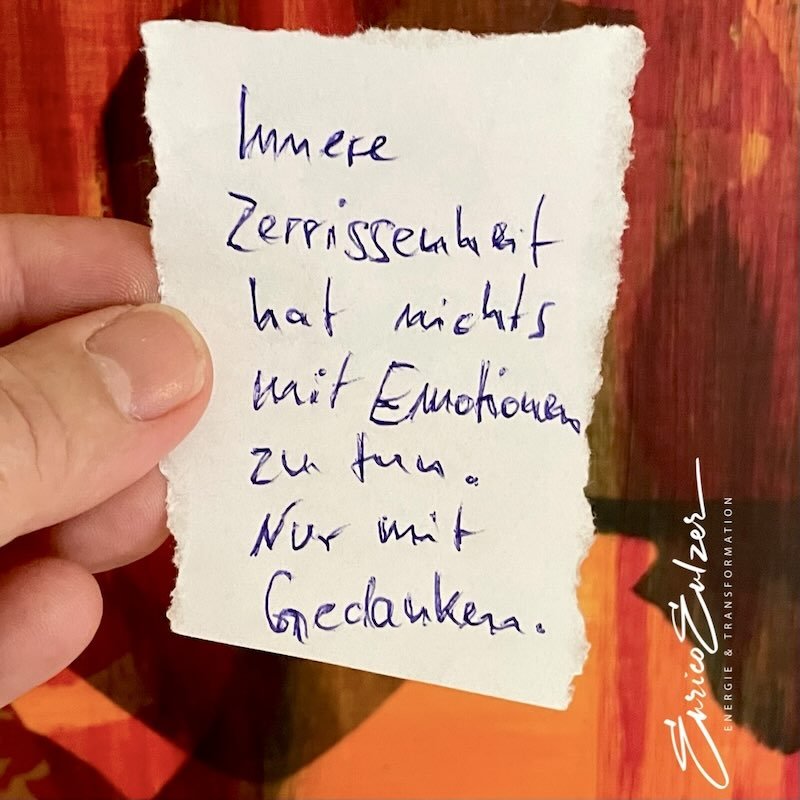 Innere
Zerrissenheit
hat nichts
mit Emotionen
zu tun.
Nur mit
Gedanken.
Enrico Eulzer
ENERGIE & TRANSFORMATION